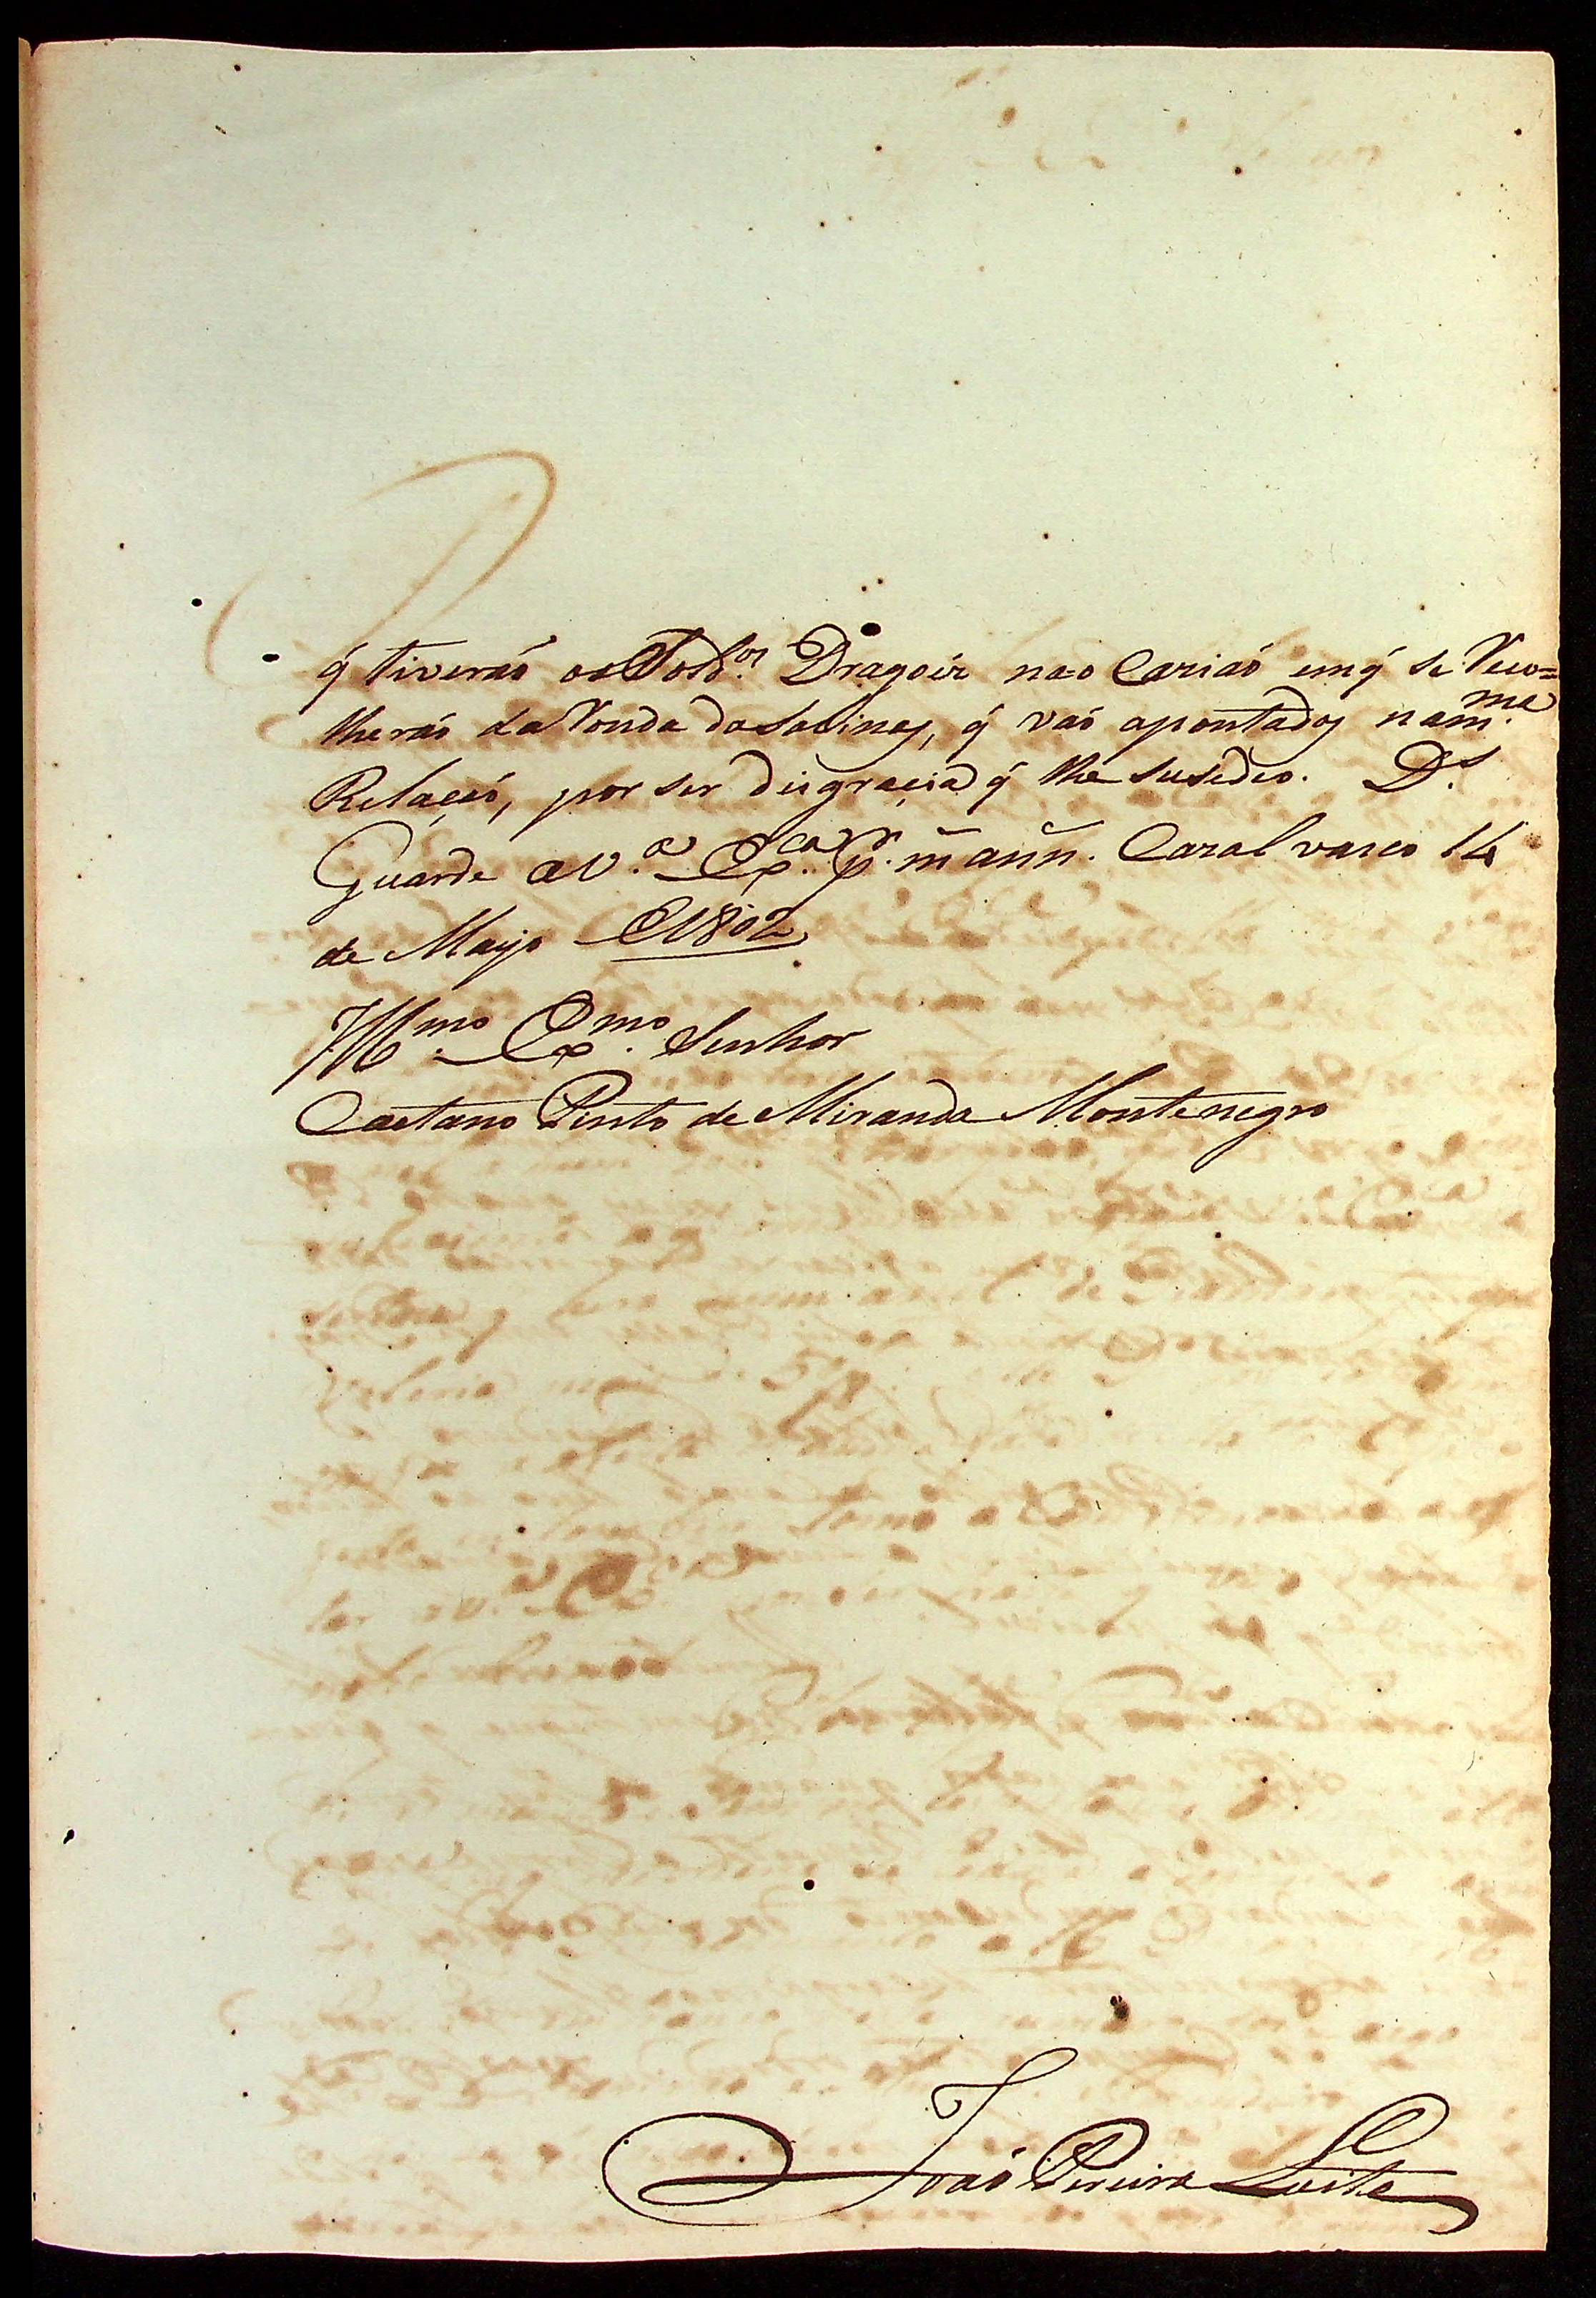 q̃ tiveraõ os Sold.os Dragoēz na o Cariaõ em q̃ se Reco=
lheraõ da Ronda das Salinas, q̃ vaõ apontados na m.ma
Relaçaõ, por ser disgraçia q̃ lhe susedeo. D.s
Guarde a V.a Ex.ca p.r m̃ ann̄. Cazal vasco 14
de Mayo E 1802,
Ill.mo Ex.mo Senhor
Caetano Pinto de Miranda Montenegro
Joaõ Pereira Leite